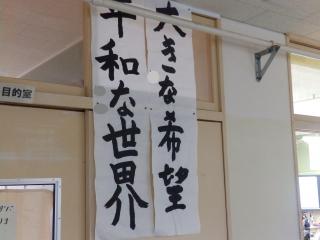 大きな希望
平和な世界
目的室